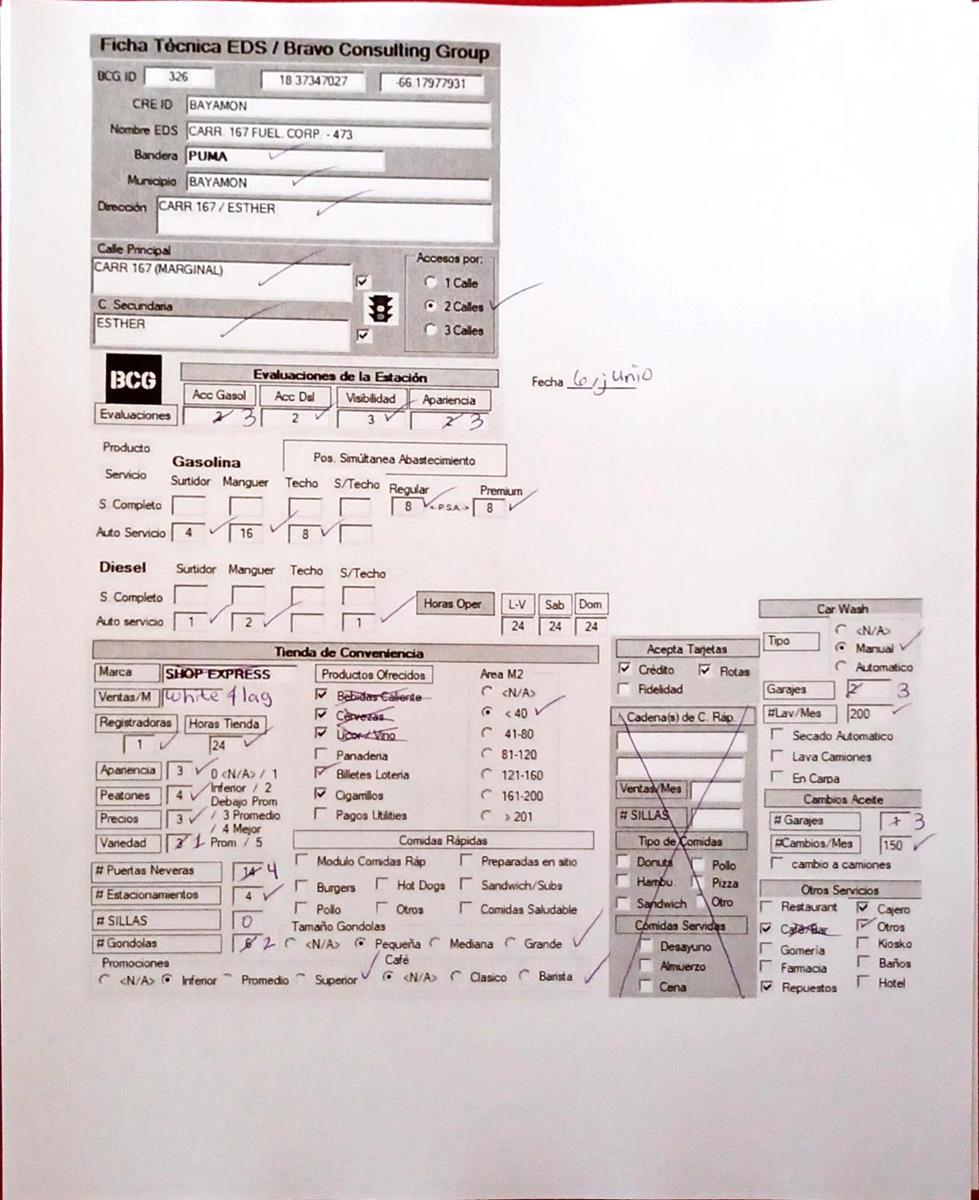 Ficha Técnica EDS / Bravo Consulting Group
BCG ID 326 18.37347027 -66.17977931
CRE ID BAYAMON
Nombre EDS CARR. 167 FUEL. CORP. - 473
Bandera PUMA
Municipio BAYAMON
Dirección CARR 167 / ESTHER
Calle Principal
CARR 167 (MARGINAL)
C. Secundaria
ESTHER
Accesos por:
1 Calle
2 Calles
3 Calles
BCG
Evaluaciones de la Estación
Acc Gasol Acc Dsl Visibilidad Apariencia
Evaluaciones 2 3 2 3 2 3
Fecha 6, junio
Producto
Servicio
Gasolina
Pos. Simúltanea Abastecimiento
Surtidor Manguer Techo S/Techo Regular Premium
S. Completo 8 <-P.S.A.-> 8
Auto Servicio 4 16 8
Diesel Surtidor Manguer Techo S/Techo
S. Completo
Auto servicio 1 2 1
Horas Oper. L-V Sab Dom
24 24 24
Tienda de Conveniencia
Marca SHOP EXPRESS
Ventas/M white flag
Registradoras Horas Tienda
1 24
Apariencia 3 0 <N/A> / 1
Peatones 4 Inferior / 2
Debajo Prom
Precios 3 / 3 Promedio
/ 4 Mejor
Variedad 3 1 Prom / 5
# Puertas Neveras 14 4
# Estacionamientos 4
# SILLAS 0
# Gondolas 6 2
Promociones
<N/A> Inferior Promedio Superior
Productos Ofrecidos
Bebidas Caliente
Cervezas
Licor / Vino
Panaderia
Billetes Loteria
Cigarrillos
Pagos Utilities
Area M2
<N/A>
< 40
41-80
81-120
121-160
161-200
> 201
Comidas Rápidas
Modulo Comidas Ráp Preparadas en sitio
Burgers Hot Dogs Sandwich/Subs
Pollo Otros Comidas Saludable
Tamaño Gondolas
<N/A> Pequeña Mediana Grande
Café
<N/A> Clasico Barista
Acepta Tarjetas
Crédito Flotas
Fidelidad
Cadena(s) de C. Ráp.
Ventas/Mes
# SILLAS
Tipo de Comidas
Donuts Pollo
Hambu. Pizza
Sandwich Otro
Comidas Servidas
Desayuno
Almuerzo
Cena
Car Wash
Tipo
<N/A>
Manual
Automatico
Garajes 2 3
#Lav/Mes 200
Secado Automatico
Lava Camiones
En Carpa
Cambios Aceite
# Garajes 3
#Cambios/Mes 150
cambio a camiones
Otros Servicios
Restaurant Cajero
Cafe-Bar Otros
Gomería Kiosko
Farmacia Baños
Repuestos Hotel